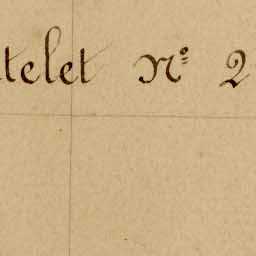 telet Nº 2